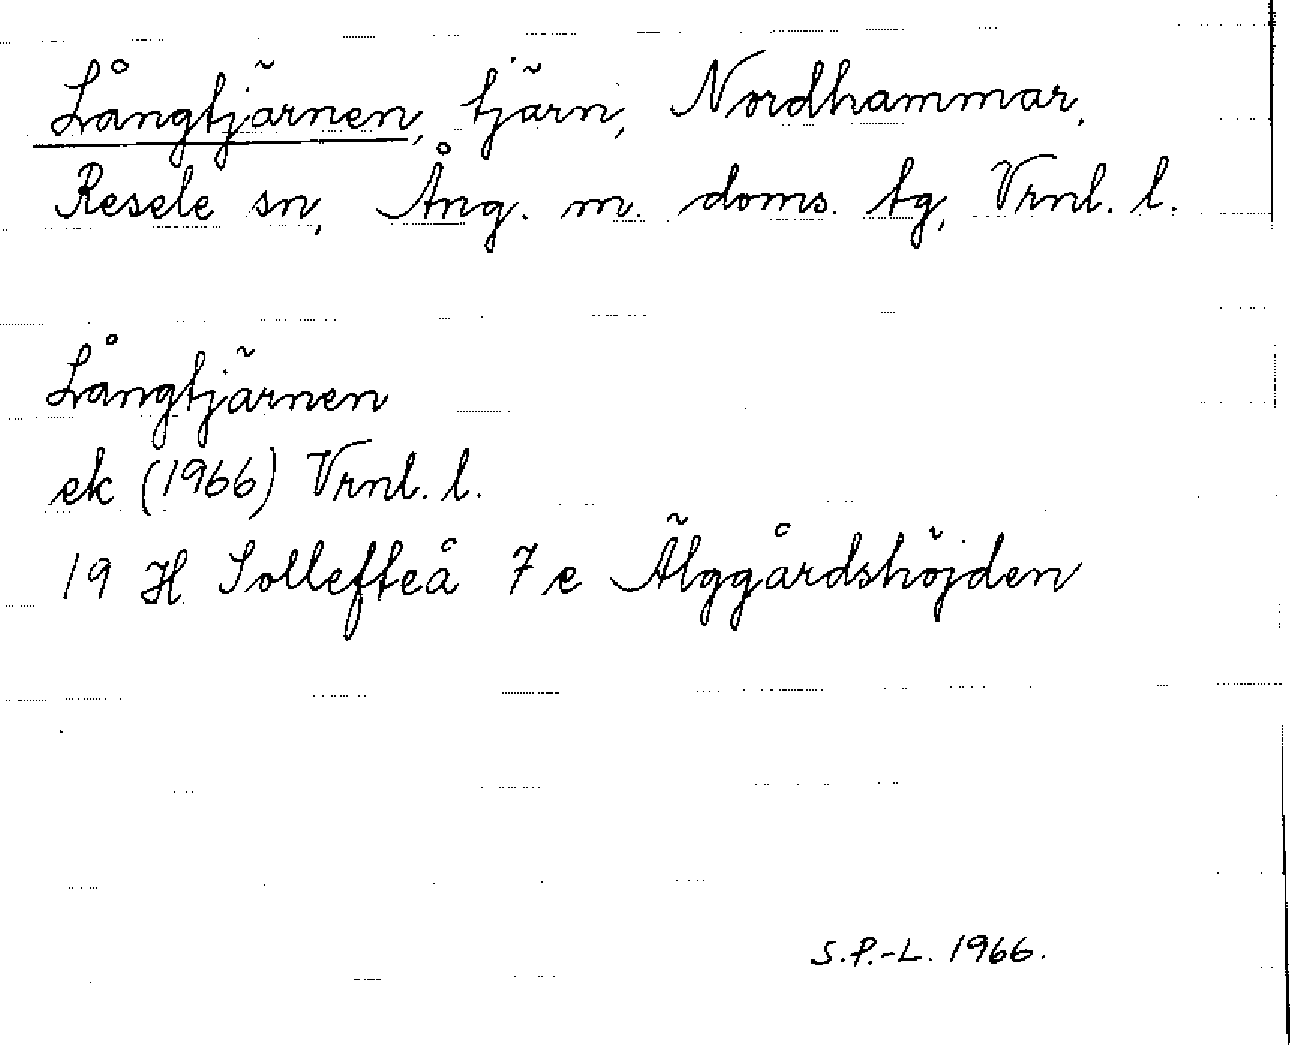 Långtjärnen, tjärn, Nordhammar,
Resele sn, Ång. m. doms. tg, Vrnl. l.
Långtjärnen
ek (1966) Vrnl. l.
19 H Sollefteå 7 e Älggårdshöjden
S.P.-L. 1966.